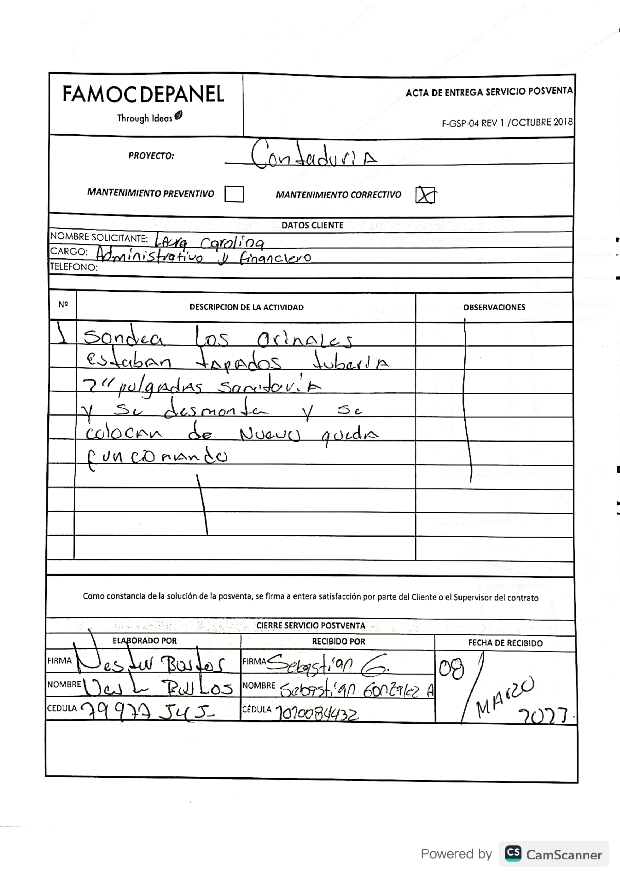 FAMOCDEPANEL
Through Ideas
ACTA DE ENTREGA SERVICIO POSVENTA
F-GSP-04 REV 1 /OCTUBRE 2018
PROYECTO: Contaduria
MANTENIMIENTO PREVENTIVO MANTENIMIENTO CORRECTIVO X
DATOS CLIENTE
NOMBRE SOLICITANTE: Laura Carolina
CARGO: Administrativo y financiero
TELEFONO:
Nº DESCRIPCION DE LA ACTIVIDAD OBSERVACIONES
1 Sondea los orinales
estaban tapados tuberia
2" pulgadas sanitaria
y se desmonta y se
colocan de Nuevo queda
funcionando
Como constancia de la solución de la posventa, se firma a entera satisfacción por parte del Cliente o el Supervisor del contrato
CIERRE SERVICIO POSTVENTA
ELABORADO POR RECIBIDO POR FECHA DE RECIBIDO
FIRMA Nestor Bustos FIRMA Sebastián G. 08/
NOMBRE NOMBRE Sebastián González A MARZO
CEDULA CÉDULA 1010084432 2022.
Powered by CS CamScanner